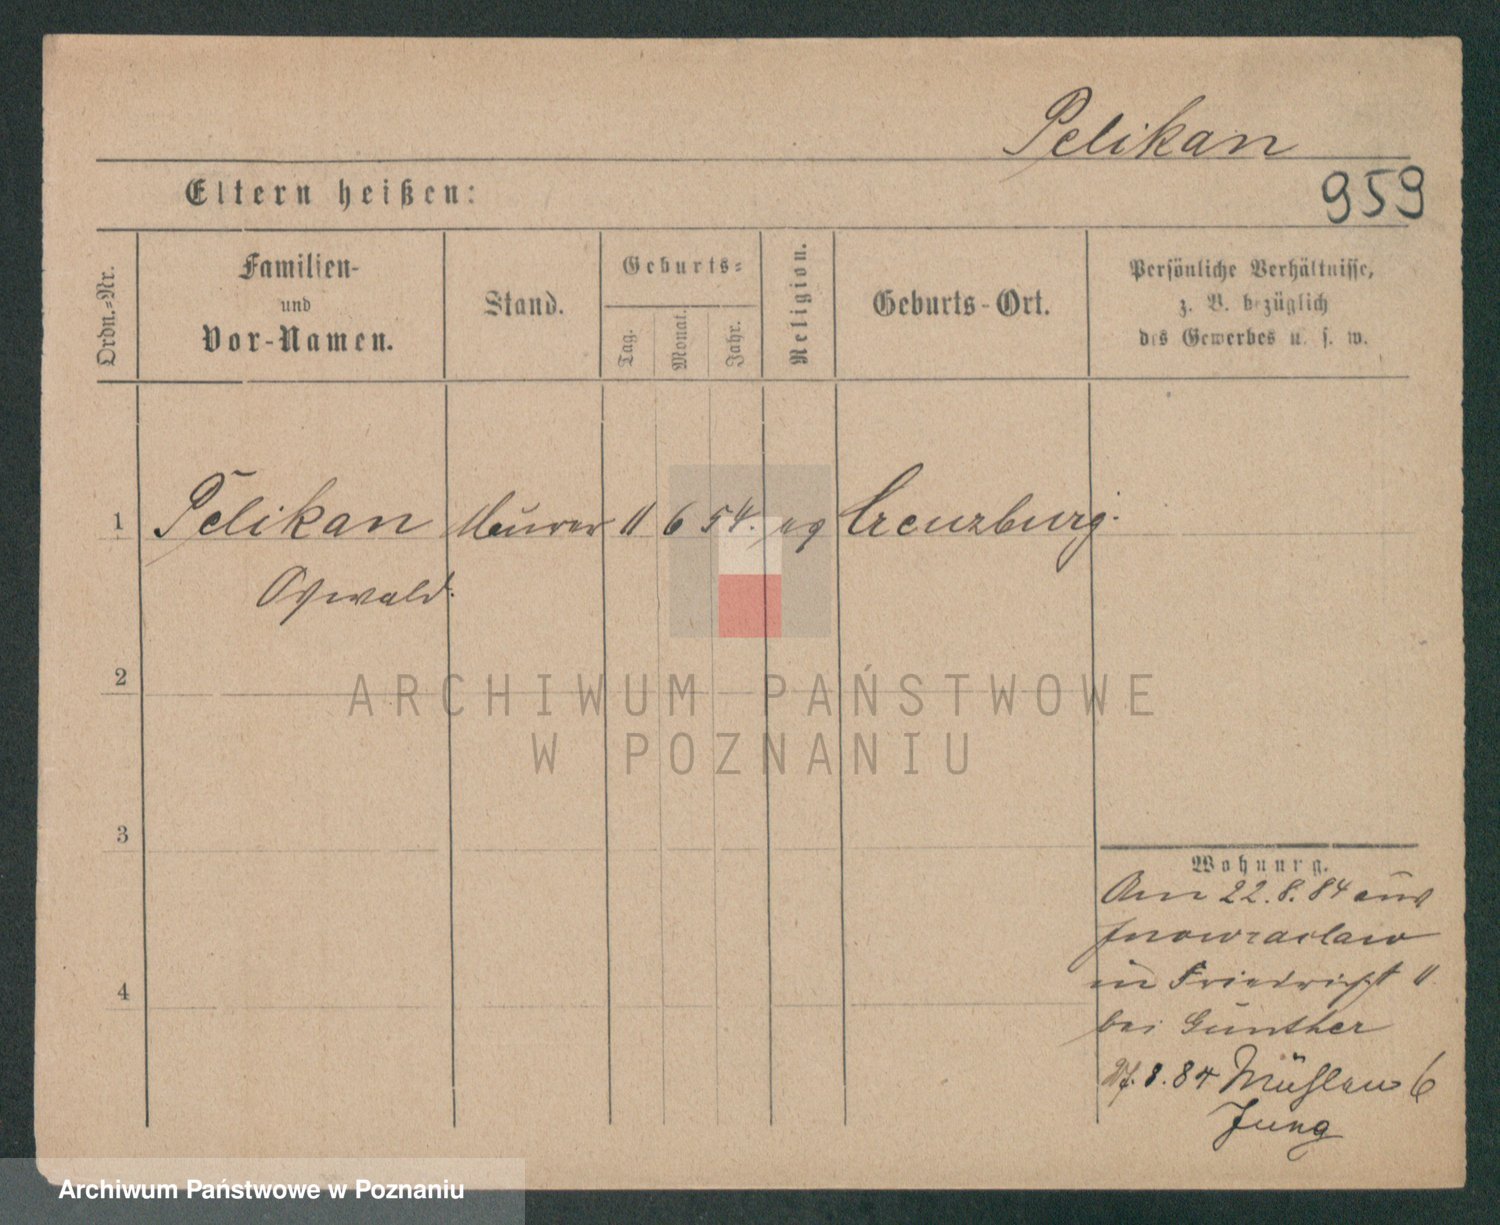 Pelikan
Eltern heißen:
959
Ordn.-Nr.
Familien-
und
Vor-Namen.
Stand.
Geburts-
Tag.
Monat.
Jahr.
Religion.
Geburts-Ort.
Persönliche Verhältnisse,
z. B. bezüglich
des Gewerbes u. s. w.
1 Pelikan Maurer 11 6 54. ev Creuzburg.
Oswald.
2
ARCHIWUM PAŃSTWOWE
W POZNANIU
3
Wohnung.
Am 22.8.84 aus
Inowraclaw
4
in Friedrichst 11
bei Günther
27.8.84 Mühlen 6
Jung
Archiwum Państwowe w Poznaniu